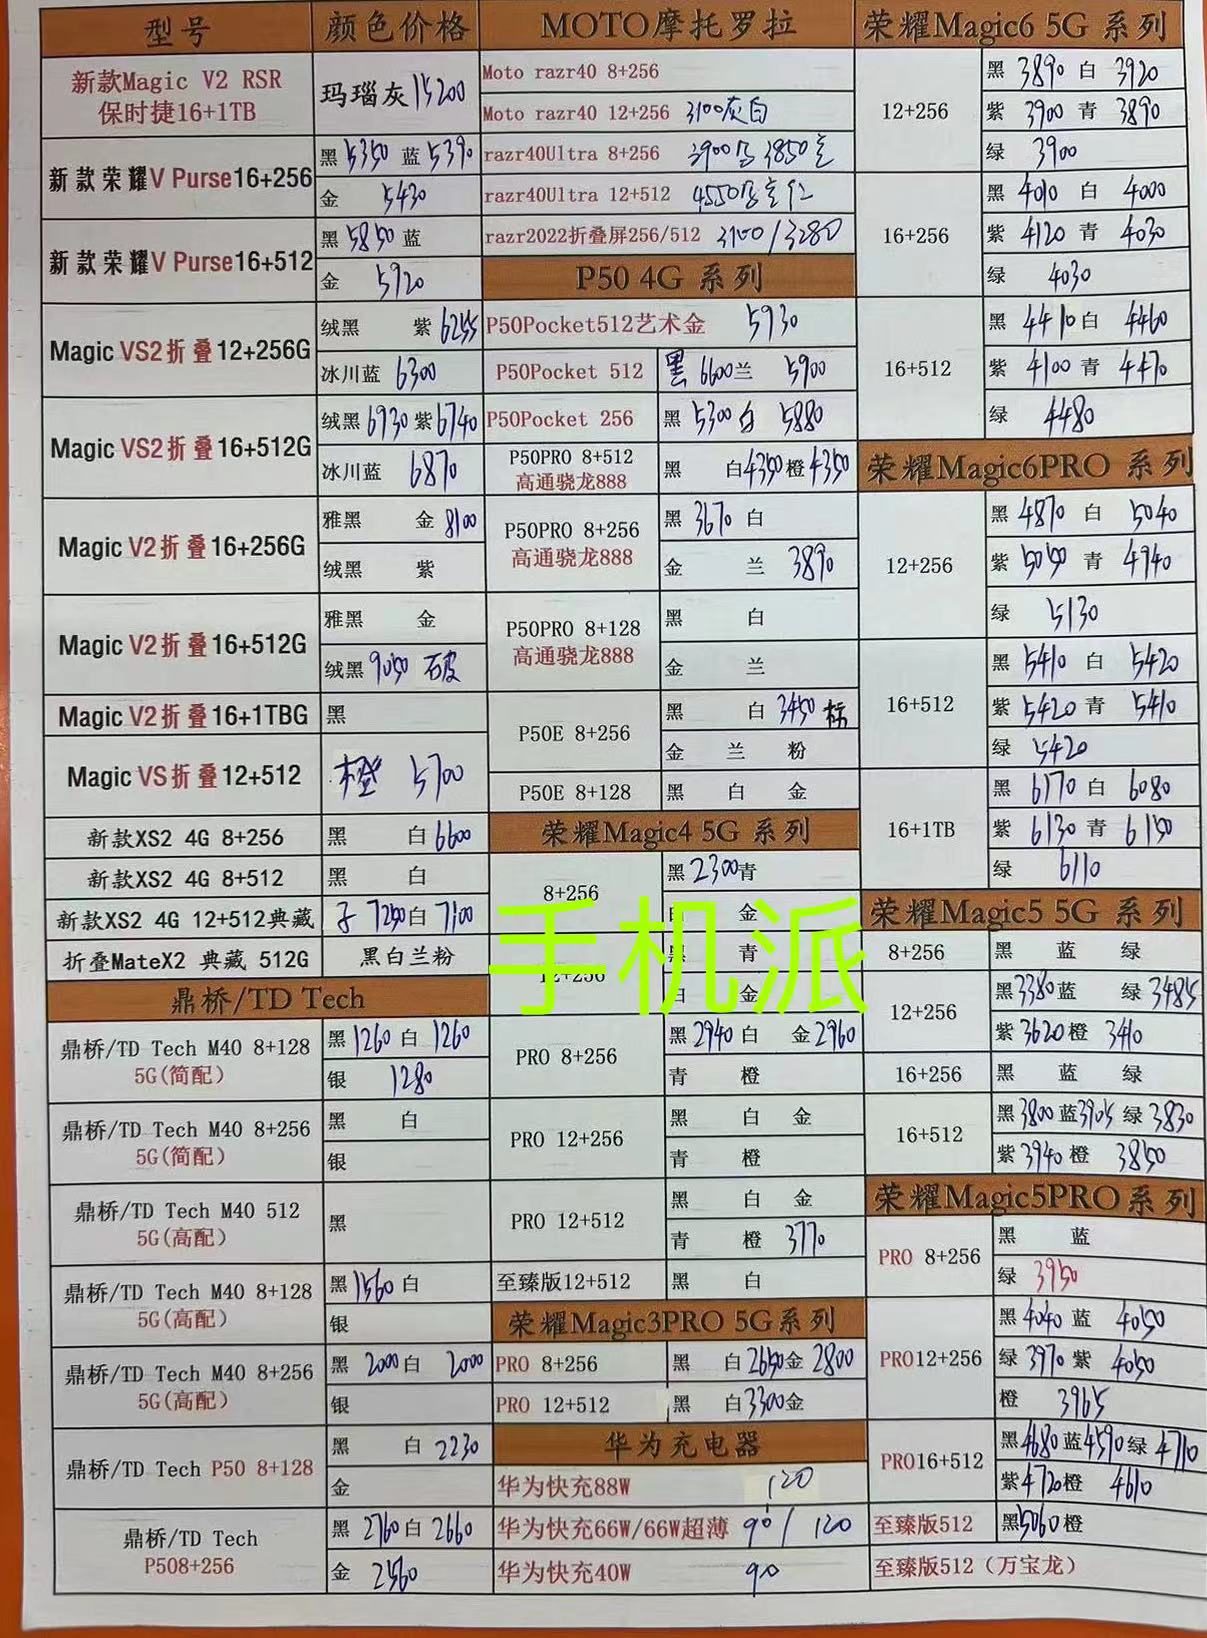 型号 颜色价格
新款Magic V2 RSR
保时捷16+1TB
玛瑙灰 15200
新款荣耀V Purse16+256
黑 5350 蓝 5390
金 5430
新款荣耀V Purse16+512
黑 5850 蓝
金 5920
Magic VS2折叠12+256G
绒黑 紫 6255
冰川蓝 6300
Magic VS2折叠16+512G
绒黑 6930 紫 6740
冰川蓝 6870
Magic V2折叠16+256G
雅黑 金 8100
绒黑 紫
Magic V2折叠16+512G
雅黑 金
绒黑 9050 石皮
Magic V2折叠16+1TBG
黑
Magic VS折叠12+512
橙 5700
新款XS2 4G 8+256
黑 白 6600
新款XS2 4G 8+512
黑 白
新款XS2 4G 12+512典藏
7250 白 7100
折叠MateX2 典藏 512G
黑白兰粉
鼎桥/TD Tech
鼎桥/TD Tech M40 8+128
5G(简配)
黑 1260 白 1260
银 1280
鼎桥/TD Tech M40 8+256
5G(简配)
黑 白
银
鼎桥/TD Tech M40 512
5G(高配)
黑
鼎桥/TD Tech M40 8+128
5G(高配)
黑 1560 白
银
鼎桥/TD Tech M40 8+256
5G(高配)
黑 2000 白 2000
银
鼎桥/TD Tech P50 8+128
黑 白 2230
金
鼎桥/TD Tech
P508+256
黑 2760 白 2660
金 2560
MOTO摩托罗拉
Moto razr40 8+256
Moto razr40 12+256 3100灰白
razr40Ultra 8+256 3900 3850
razr40Ultra 12+512 4550
razr2022折叠屏256/512 3100/3280
P50 4G 系列
P50Pocket512艺术金 5930
P50Pocket 512
黑 6600 兰 5900
P50Pocket 256
黑 5300 白 5880
P50PRO 8+512
高通骁龙888
黑 白 4350 橙 4350
P50PRO 8+256
高通骁龙888
黑 3670 白
金 兰 3890
P50PRO 8+128
高通骁龙888
黑 白
金 兰
P50E 8+256
黑 白 3450 标
金 兰 粉
P50E 8+128
黑 白 金
荣耀Magic4 5G 系列
8+256
黑 2300 青
白 金
12+256
黑 青
白 金
PRO 8+256
黑 2940 白 金 2960
青 橙
PRO 12+256
黑 白 金
青 橙
PRO 12+512
黑 白 金
青 橙 3770
至臻版12+512
黑 白
荣耀Magic3PRO 5G系列
PRO 8+256
黑 白 2650 金 2800
PRO 12+512
黑 白 3300 金
华为充电器
华为快充88W 120
华为快充66W/66W超薄 90/120
华为快充40W 90
荣耀Magic6 5G 系列
12+256
黑 3890 白 3920
紫 3900 青 3890
绿 3900
16+256
黑 4010 白 4000
紫 4120 青 4030
绿 4030
16+512
黑 4410 白 4460
紫 4100 青 4470
绿 4480
荣耀Magic6PRO 系列
12+256
黑 4870 白 5040
紫 5050 青 4940
绿 5130
16+512
黑 5410 白 5420
紫 5420 青 5410
绿 5420
16+1TB
黑 6170 白 6080
紫 6130 青 6150
绿 6110
荣耀Magic5 5G 系列
8+256
黑 蓝 绿
12+256
黑 3380 蓝 绿 3485
紫 3620 橙 3410
16+256
黑 蓝 绿
16+512
黑 3800 蓝 3905 绿 3830
紫 3940 橙 3850
荣耀Magic5PRO系列
PRO 8+256
黑 蓝
绿 3950
PRO12+256
黑 4040 蓝 4050
绿 3970 紫 4050
橙 3965
PRO16+512
黑 4680 蓝 4590 绿 4710
紫 4720 橙 4610
至臻版512
黑 5060 橙
至臻版512（万宝龙）
手机派